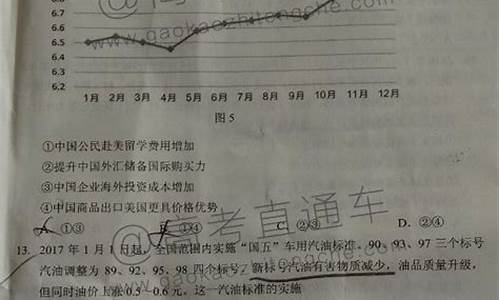 6.8
6.7
6.6
6.5
6.4
6.3
6.2
www.gaokaozhitongche.com
1月 2月 3月 4月 5月 6月 7月 8月 9月 10月 11月 12月
图 5
①中国公民赴美留学费用增加
②提升中国外汇储备国际购买力
③中国企业海外投资成本增加
④中国商品出口美国更具价格优势
@高考直通车
A. ①③ B. ①④ C. ②③ D. ②④
13. 2017 年 1 月 1 日起，全国范围内实施“国五”车用汽油标准。90、93、97 三个标号
汽油调整为 89、92、95、98 四个标号，新标号汽油有害物质减少，油品质量升级，
但同时油价上涨 0.5—0.6 元。这一汽油标准的实施